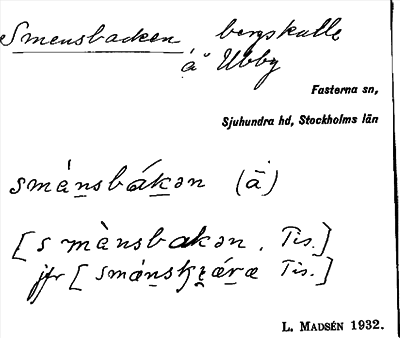 Smensbacken bergskulle
å Ubby
Fasterna sn,
Sjuhundra hd, Stockholms län
smánsbákən (ā)
[smànsbakən, Tis.]
jfr [smánskæ̀ræ Tis.]
L. MADSÉN 1932.